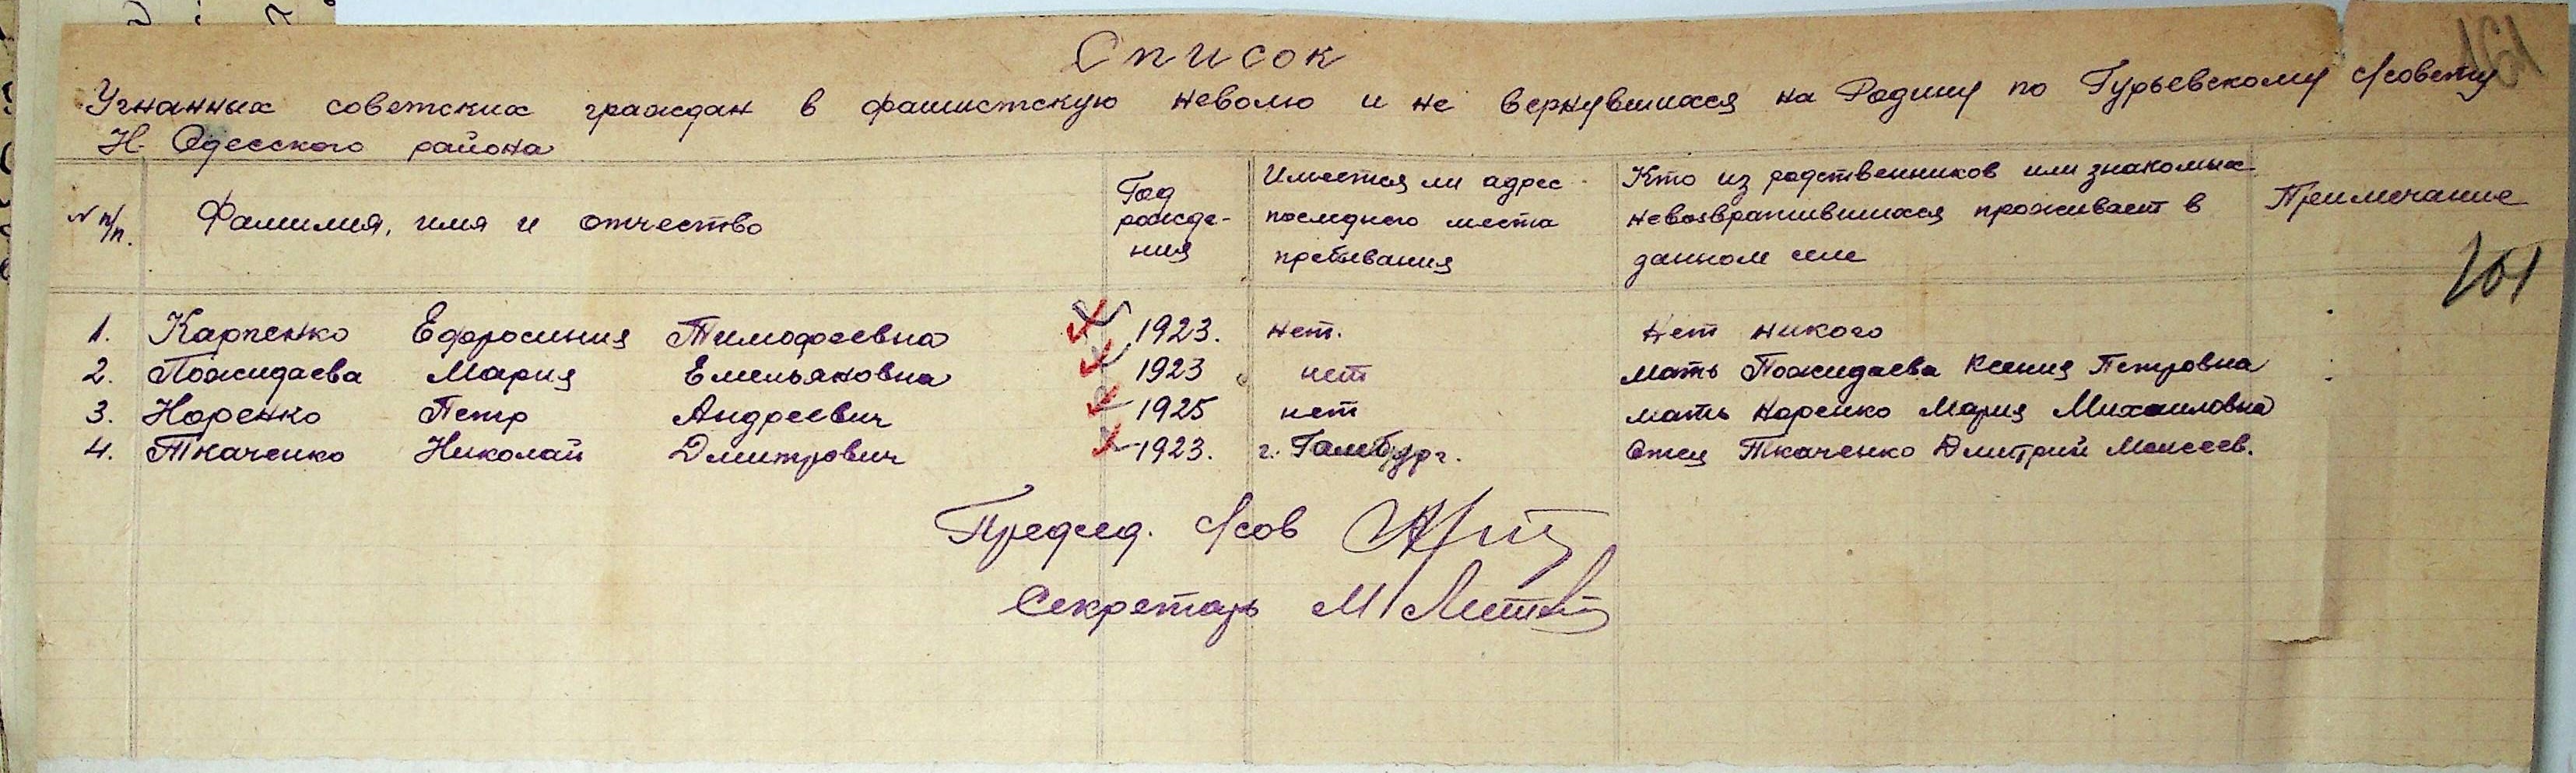 Список
Угнанных советских граждан в фашистскую неволю и не вернувшихся на Родину по Гурьевскому с/совету
Н. Одесского района
N п/п. Фамилия, имя и отчество Год рожде-ния Имеется ли адрес последнего места пребывания Кто из родственников или знакомых невозвратившихся проживает в данном селе Примечание
101
1. Карпенко Ефросиния Тимофеевна 1923. нет. Нет никого
2. Пожидаева Мария Емельяновна 1923 нет мать Пожидаева Ксения Петровна
3. Норенко Петр Андреевич 1925 нет мать Норенко Мария Михаиловна
4. Ткаченко Николай Дмитрович 1923. г. Гамбург. Отец Ткаченко Дмитрий Моисеев.
Председ. с/сов
Секретарь